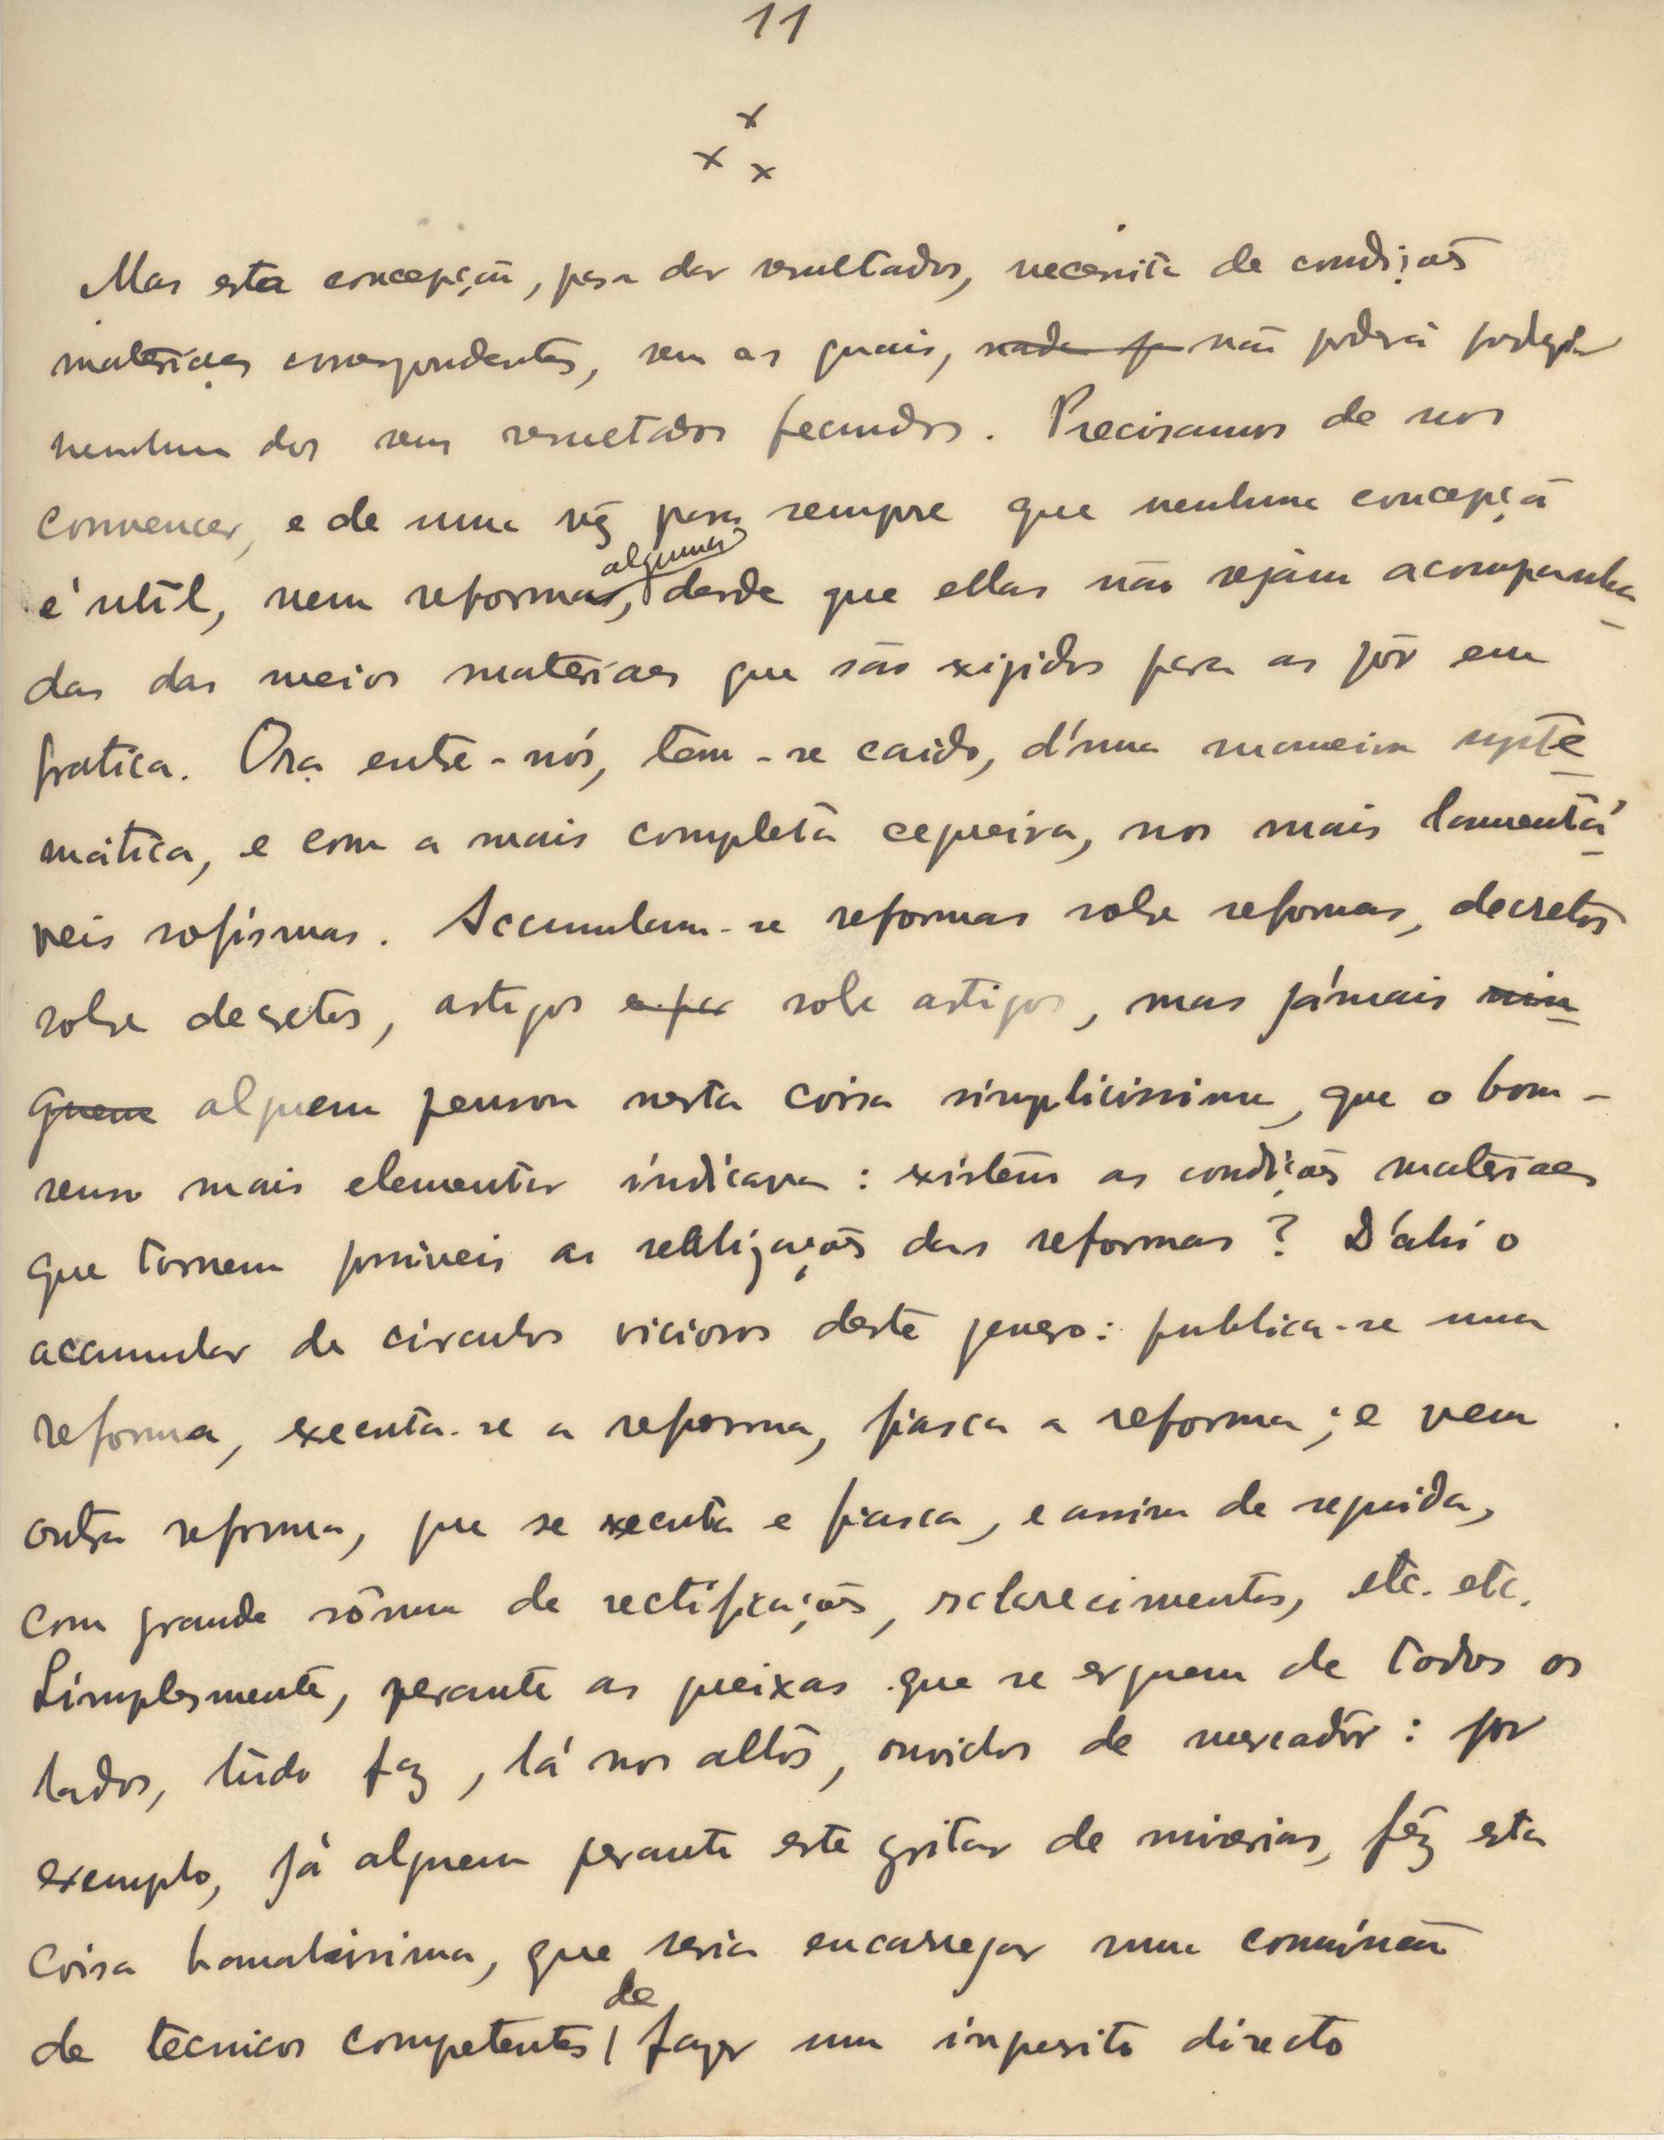 11
x
x x
Mas esta concepção, para dar resultados, necessita de condições
materiaes correspondentes, sem as quais, não poderá
nenhum dos seus resultados fecundos. Precisamos de nos
convencer, e de uma vez para sempre que nenhuma concepção
é util, nem reformas algumas, desde que ellas não sejam acompanha
das dos meios materiaes que são exigidos para as pôr em
pratica. Ora entre-nós, tem-se caido, d'uma maneira syste
mática, e com a mais completa cegueira, nos mais lamentá
veis sofismas. Accumulam-se reformas sobre reformas, decretos
sobre decretos, artigos sobre artigos, mas jámais nin
guem alguem pensou nesta coisa simplicissima, que o bom-
senso mais elementar indicava: existem as condições materiaes
que tornem possiveis as realizações das reformas? D'ahi o
accumular de circulos viciosos deste genero: publica-se uma
reforma, executa-se a reforma, fiasca a reforma; e vem
outra reforma, que se executa e fiasca, e assim de seguida,
com grande sôma de rectificações, esclarecimentos, etc. etc.
Simplesmente, perante as queixas que se erguem de todos os
lados, tudo faz, lá nos altos, ouvidos de mercador: por
exemplo, já alguem perante este gritar de miserias, fêz esta
coisa banalissima, que seria encarregar uma comissão
de tecnicos competentes de fazer um inquerito directo